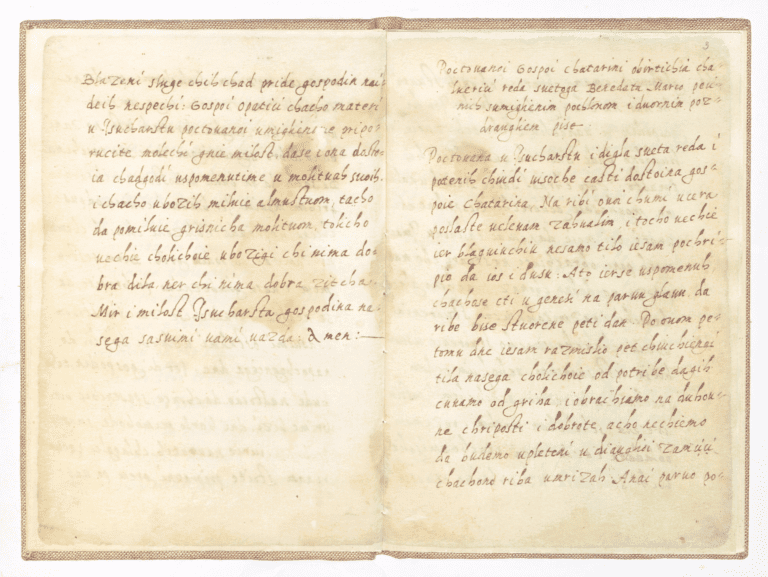 Blazeni sluge chih chad pride gospodin nai-
deih nespechi. Gospoi opatici chacho materi
u Isucharstu poctovanoi umighens
rucite molechi gnie milost, dase i ona dosto-
ia chadgodi uspomenutime u molituah suoih.
i chacho ubozih miluie almustuom, tacho
da pomiluie grisnicha molituom, tolicho
uechie cholichoie ubozigi chi nima do-
bra dila ner chi nima dobra zitcha.
Mir i milost Isucharsta gospodina na-
sega sasuimi uami uazda: Amen:
3
Poctovanoi Gospoi Chatarini
reda suetoga Benedata Marco
nih sumighenim pochlonom i duornim poz-
draughem pise
Poctovana u Isucharstu i digla sueta reda i
potenih chiudi usoche casti dostoina gos-
poie Chatarina, Na ribi ouoi chumi ucera
poslaste uclenam zahualim, i tocho uechie
ier blaguiuchiu nesamo tilo iesam pochri-
pio da ios i dusu. Ato ierse uspomenuh,
chachose cti u genesi na paruu glauu, da
ribe bise stuorene peti dan. Po ouom pe-
tomu dne iesam razmislio pet chiuchienoi
tila nasega cholichoie od potribe dagih
cuuamo od griha, i obrachiamo na duhou-
ne chriposti i dobrote, acho nechiemo
da budemo upleteni u diaughsi zamici
chachono riba umrizah. Anai paruo po-